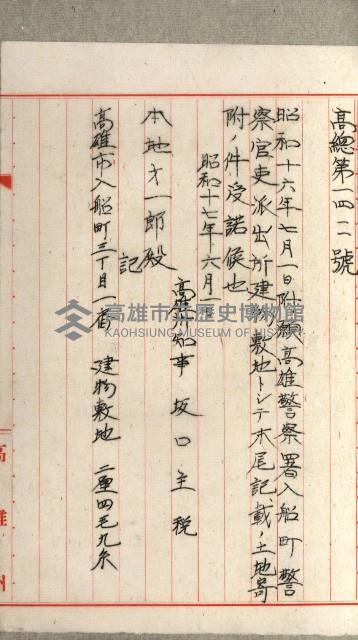 高總第一四二號
昭和十六年七月一日附願高雄警察署入船町警
察官吏派出所建物敷地トシテ本尾記載ノ土地寄
附ノ件受諾候也
昭和十七年六月一
高雄州知事 坂口主税
本地才一郎殿
記
高雄市入船町三丁目一番 建物敷地 二厘四毛九糸
高雄州
高雄市立歷史博物館
KAOHSIUNG MUSEUM OF HISTORY